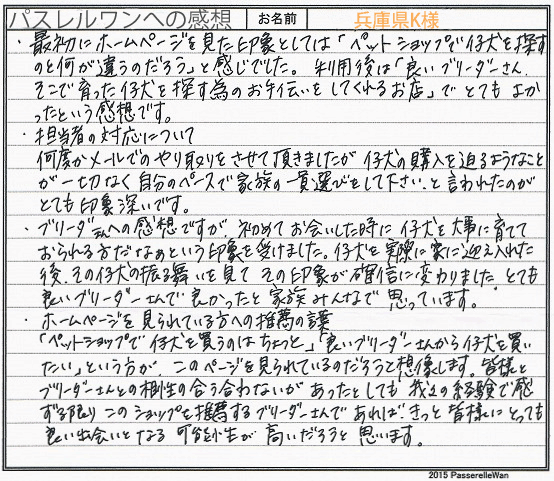 パスレルワンへの感想 お名前 兵庫県K様
・最初にホームページを見た印象としては「ペットショップで仔犬を探す
のと何が違うのだろう」と感じでした。利用後は「良いブリーダーさん、
そこで育った仔犬を探す為のお手伝いをしてくれるお店」でとてもよか
ったという感想です。
・担当者の対応について
何度かメールでのやり取りをさせて頂きましたが仔犬の購入を迫るようなこと
が一切なく自分のペースで家族の一員選びをして下さい、と言われたのが
とても印象深いです。
・ブリーダーさんへの感想ですが、初めてお会いした時に仔犬を大事に育てて
おられる方だなぁという印象を受けました。仔犬を実際に家に迎え入れた
後、その仔犬の振る舞いを見てその印象が確信に変わりました とても
良いブリーダーさんで良かったと家族みんなで思っています。
・ホームページを見られている方への推薦の言葉
「ペットショップで仔犬を買うのはちょっと」「良いブリーダーさんから仔犬を買い
たい」という方が、このページを見られているのだろうと想像します。皆様と
ブリーダーさんとの相性の合う合わないがあったとしても 我々の経験で感
ずる限りこのショップを推薦するブリーダーさんであれば、きっと皆様にとっても
良い出会いとなる可能性が高いだろうと思います。
2015 PasserelleWan